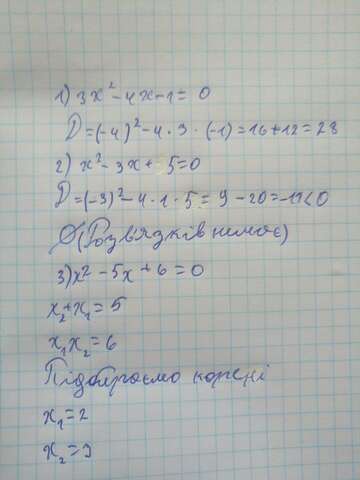 1) 3x² - 4x - 1 = 0
D = (-4)² - 4 · 3 · (-1) = 16 + 12 = 28
2) x² - 3x + 5 = 0
D = (-3)² - 4 · 1 · 5 = 9 - 20 = -11 < 0
∅ (Розв'язків немає)
3) x² - 5x + 6 = 0
x₂ + x₁ = 5
x₁ x₂ = 6
Підбираємо корені
x₁ = 2
x₂ = 3